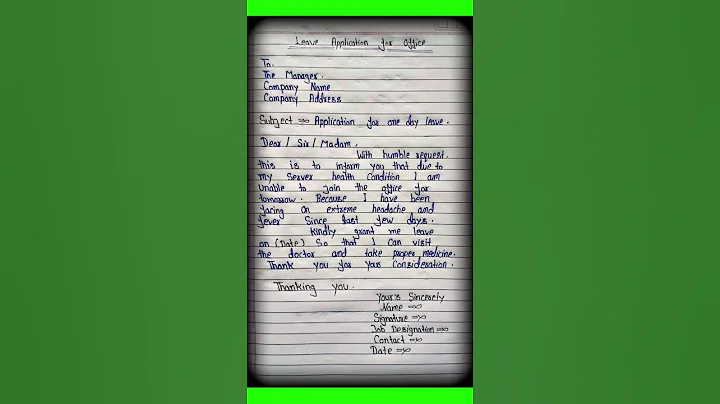 Leave Application for Office
To
The Manager.
Company Name
Company Address
Subject ⇒ Application for one day leave.
Dear / Sir / Madam.
With humble request.
this is to inform you that due to
my Server health condition I am
unable to join the office for
tomorrow. Because I have been
facing an extreme headache and
fever since last few days.
Kindly grant me leave
on (Date) So that I can visit
the doctor and take proper medicine.
Thank you for your Consideration.
Thanking you.
Your's Sincerely
Name ⇒
Signature ⇒
Job Designation ⇒
Contact ⇒
Date ⇒